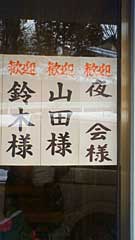 歓迎 夜会様
歓迎 山田様
歓迎 鈴木様